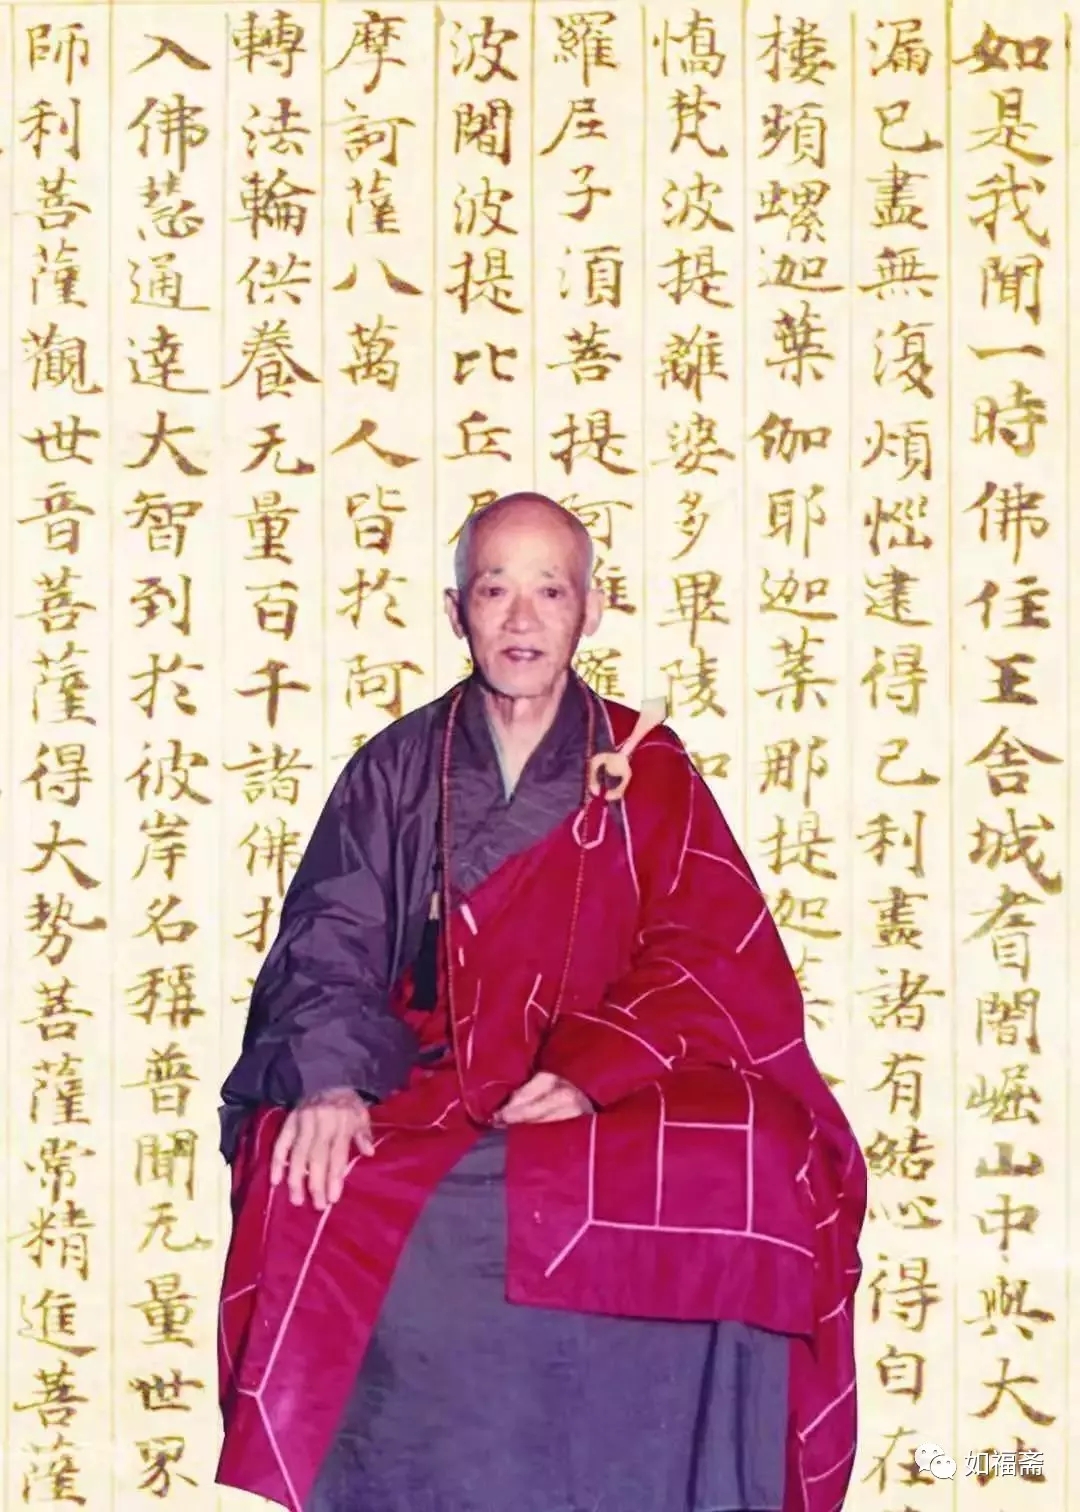 如是我聞一時佛住王舍城耆闍崛山中與大比
漏已盡無復煩惱逮得己利盡諸有結心得自在
樓頻螺迦葉伽耶迦葉那提迦葉
憍梵波提離婆多畢陵伽
羅尼子須菩提阿難羅
波闍波提比丘尼
摩訶薩八萬人皆於阿
轉法輪供養无量百千諸佛
入佛慧通達大智到於彼岸名稱普聞无量世界
師利菩薩觀世音菩薩得大勢菩薩常精進菩薩
如福斋